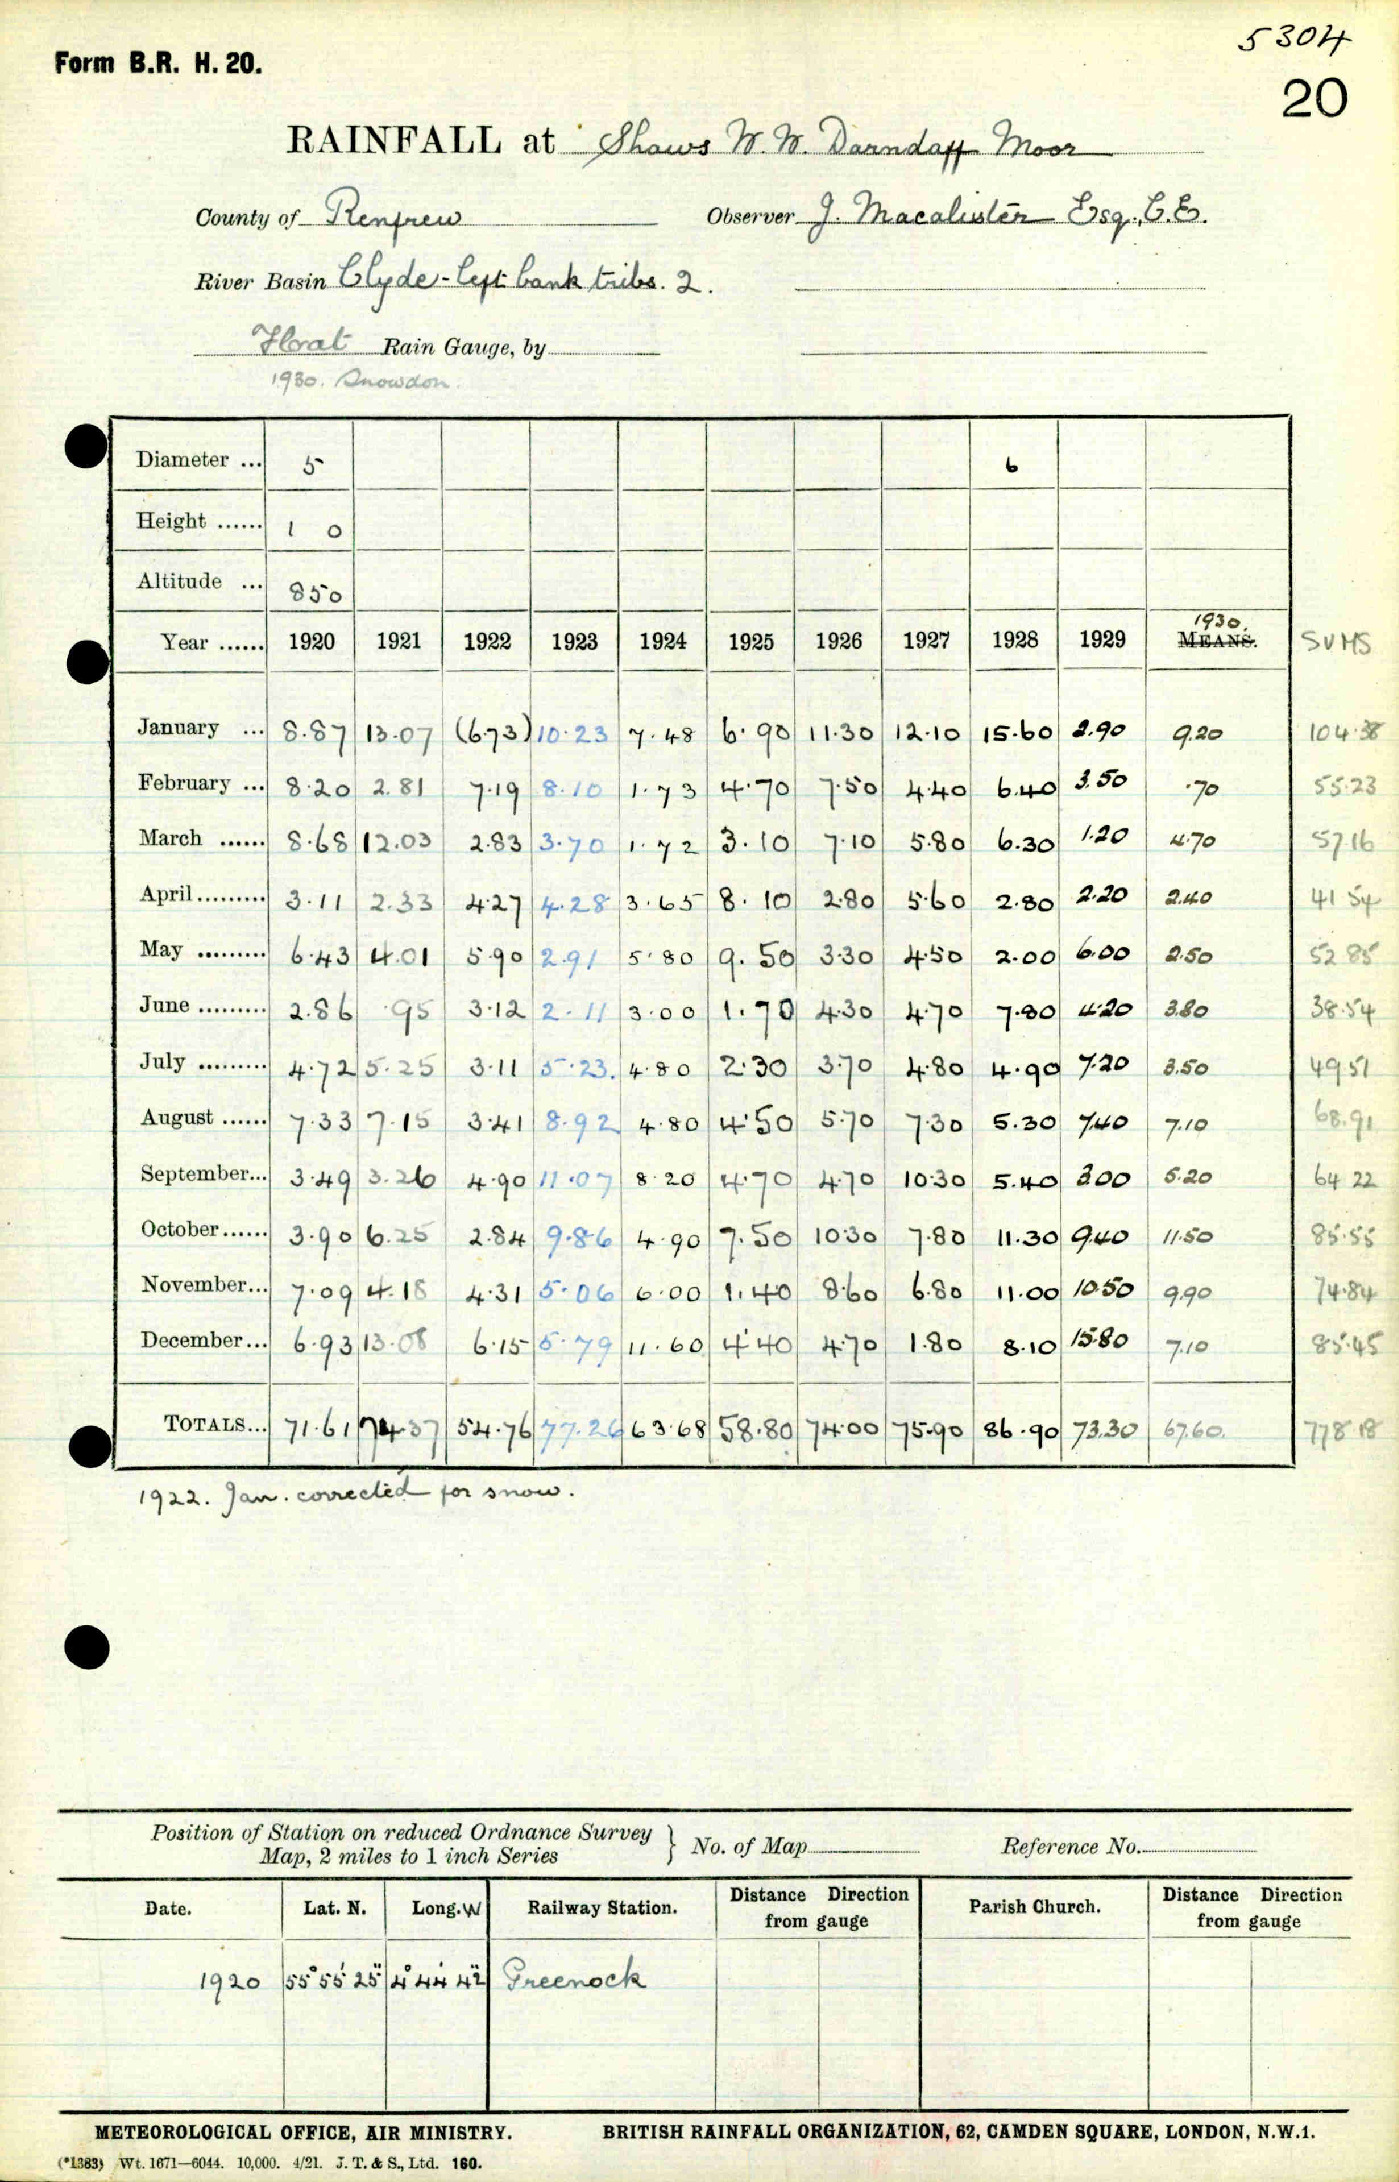 5304
Form B.R. H. 20.
20
RAINFALL at Shaws W. W. Darndaff Moor
County of Renfrew Observer J. Macalister Esq., C.E.
River Basin Clyde - left bank tribs. 2.
Float Rain Gauge, by
1930. Snowdon.
Diameter ... 5 6
Height ...... 1 0
Altitude ... 850
1930.
Year ...... 1920 1921 1922 1923 1924 1925 1926 1927 1928 1929 MEANS. SUMS
January ... 8.87 13.07 (6.73) 10.23 7.48 6.90 11.30 12.10 15.60 2.90 9.20 104.38
February ... 8.20 2.81 7.19 8.10 1.73 4.70 7.50 4.40 6.40 3.50 .70 55.23
March ...... 8.68 12.03 2.83 3.70 1.72 3.10 7.10 5.80 6.30 1.20 4.70 57.16
April......... 3.11 2.33 4.27 4.28 3.65 8.10 2.80 5.60 2.80 2.20 2.40 41 54
May ......... 6.43 4.01 5.90 2.91 5.80 9.50 3.30 4.50 2.00 6.00 2.50 52 85
June ......... 2.86 .95 3.12 2.11 3.00 1.70 4.30 4.70 7.80 4.20 3.80 38.54
July ......... 4.72 5.25 3.11 5.23. 4.80 2.30 3.70 4.80 4.90 7.20 3.50 49 51
August ...... 7.33 7.15 3.41 8.92 4.80 4.50 5.70 7.30 5.30 7.40 7.10 68.91
September... 3.49 3.26 4.90 11.07 8.20 4.70 4.70 10.30 5.40 3.00 5.20 64 22
October...... 3.90 6.25 2.84 9.86 4.90 7.50 10.30 7.80 11.30 9.40 11.50 85.55
November... 7.09 4.18 4.31 5.06 6.00 1.40 8.60 6.80 11.00 10.50 9.90 74.84
December... 6.93 13.08 6.15 5.79 11.60 4.40 4.70 1.80 8.10 15.80 7.10 85.45
TOTALS... 71.61 74.37 54.76 77.26 63.68 58.80 74.00 75.90 86.90 73.30 67.60. 778 18
1922. Jan. corrected for snow.
Position of Station on reduced Ordnance Survey Map, 2 miles to 1 inch Series } No. of Map Reference No.
Date. Lat. N. Long. W Railway Station. Distance Direction from gauge Parish Church. Distance Direction from gauge
1920 55° 55' 25" 4° 44' 42" Greenock
METEOROLOGICAL OFFICE, AIR MINISTRY. BRITISH RAINFALL ORGANIZATION, 62, CAMDEN SQUARE, LONDON, N.W.1.
(*1383) Wt. 1671—6044. 10,000. 4/21. J. T. & S., Ltd. 160.